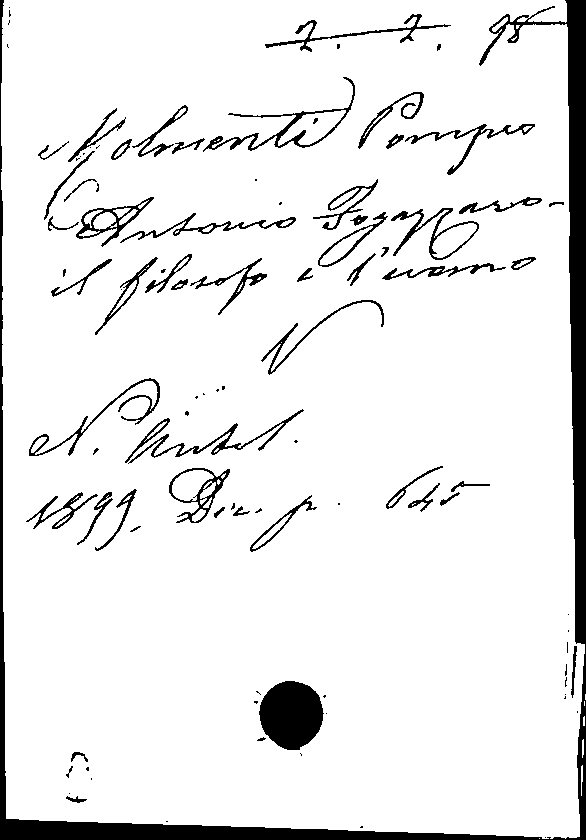 2. 2. 98
Molmenti Pompeo
Antonio Fogazzaro -
il filosofo e l'uomo
N
N. Antol.
1899. Dic. p. 645